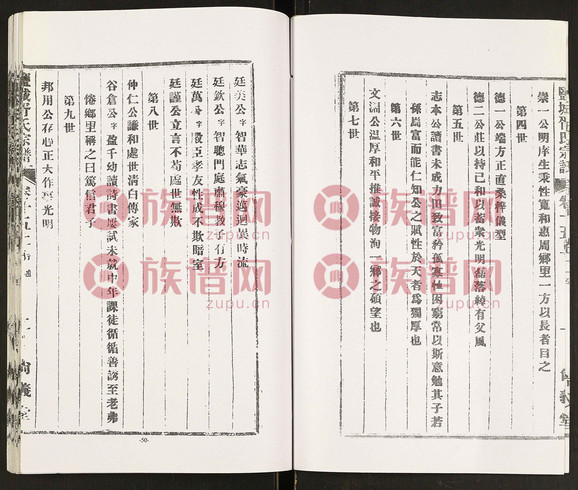 崇一公明庠生秉性寬和惠周鄉里一方以長者目之
第四世
德一公端方正直桑梓儀型
德二公莊以持己和以蓄衆光明磊落綽有父風
志本公讀書未成力田致富矜孤寡恤困窮常以斯意勉其子若
孫富而能仁知公之賦性於天者爲獨厚也
第六世
文淵公温厚和平推誠接物洵一鄉之碩望也
第七世
廷美公字智華志氣豪邁迥異時流
廷欽公字智聰門庭嚴穆教子有方
廷萬公字殿臣孝友性成不欺暗室
廷謹公立言不苟處世無欺
第八世
仲仁公謙和處世清白傳家
谷倉公字盈千幼讀詩書應試未就中年課徒循循善誘至老弗
倦鄉里稱之曰篤信君子
邦用公存心正大作事光明
第九世
鹽城 氏宗譜
卷十五
尚義堂
-50-
族谱网
zupu.cn
族谱网
zupu.cn
族谱网
zupu.cn
族谱网
zupu.cn